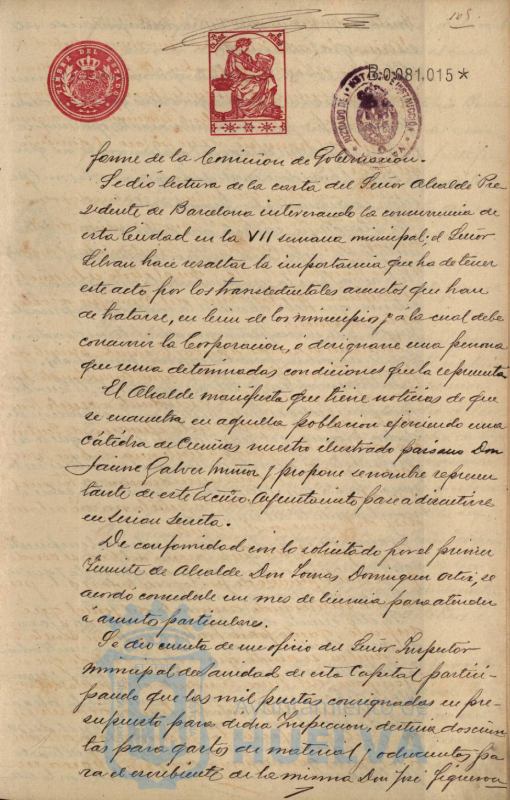 105.
TIMBRE DEL ESTADO
B.0.081,015*
forme de la Comision de Gobernacion.
Se dió lectura de la carta del Señor Alcalde Pre-
sidente de Barcelona interesando la concurrencia de
esta Ciudad en la VII semana municipal; el Señor
Silvan hace resaltar la importancia que ha de tener
este acto por los transcedentales asuntos que han
de tratarse, en bien de los municipios, y á la cual debe
concurrir la Corporacion, ó designarse una persona
que reuna determinadas condiciones que la represente.
El Alcalde manifiesta que tiene noticias de que
se encuentra en aquella poblacion ejerciendo una
cátedra de Ciencias nuestro ilustrado paisano Don
Jaime Galvez Muñoz y propone se nombre represen-
tante de este Excmo. Ayuntamiento, pase á discutirse
en Sesion Secreta.
De conformidad con lo solicitado por el primer
Teniente de Alcalde Don Tomas Dominguez Ortiz, se
acordó concederle un mes de licencia para atender
á asuntos particulares.
Se dio cuenta de un oficio del Señor Inspector
municipal de Sanidad de esta Capital partici-
pando que las mil pesetas consignadas en pre-
supuesto para dicha Inspeccion, destina doscien-
tas para gastos de material y ochocientas pa-
ra el escribiente de la misma Don José Figueroa